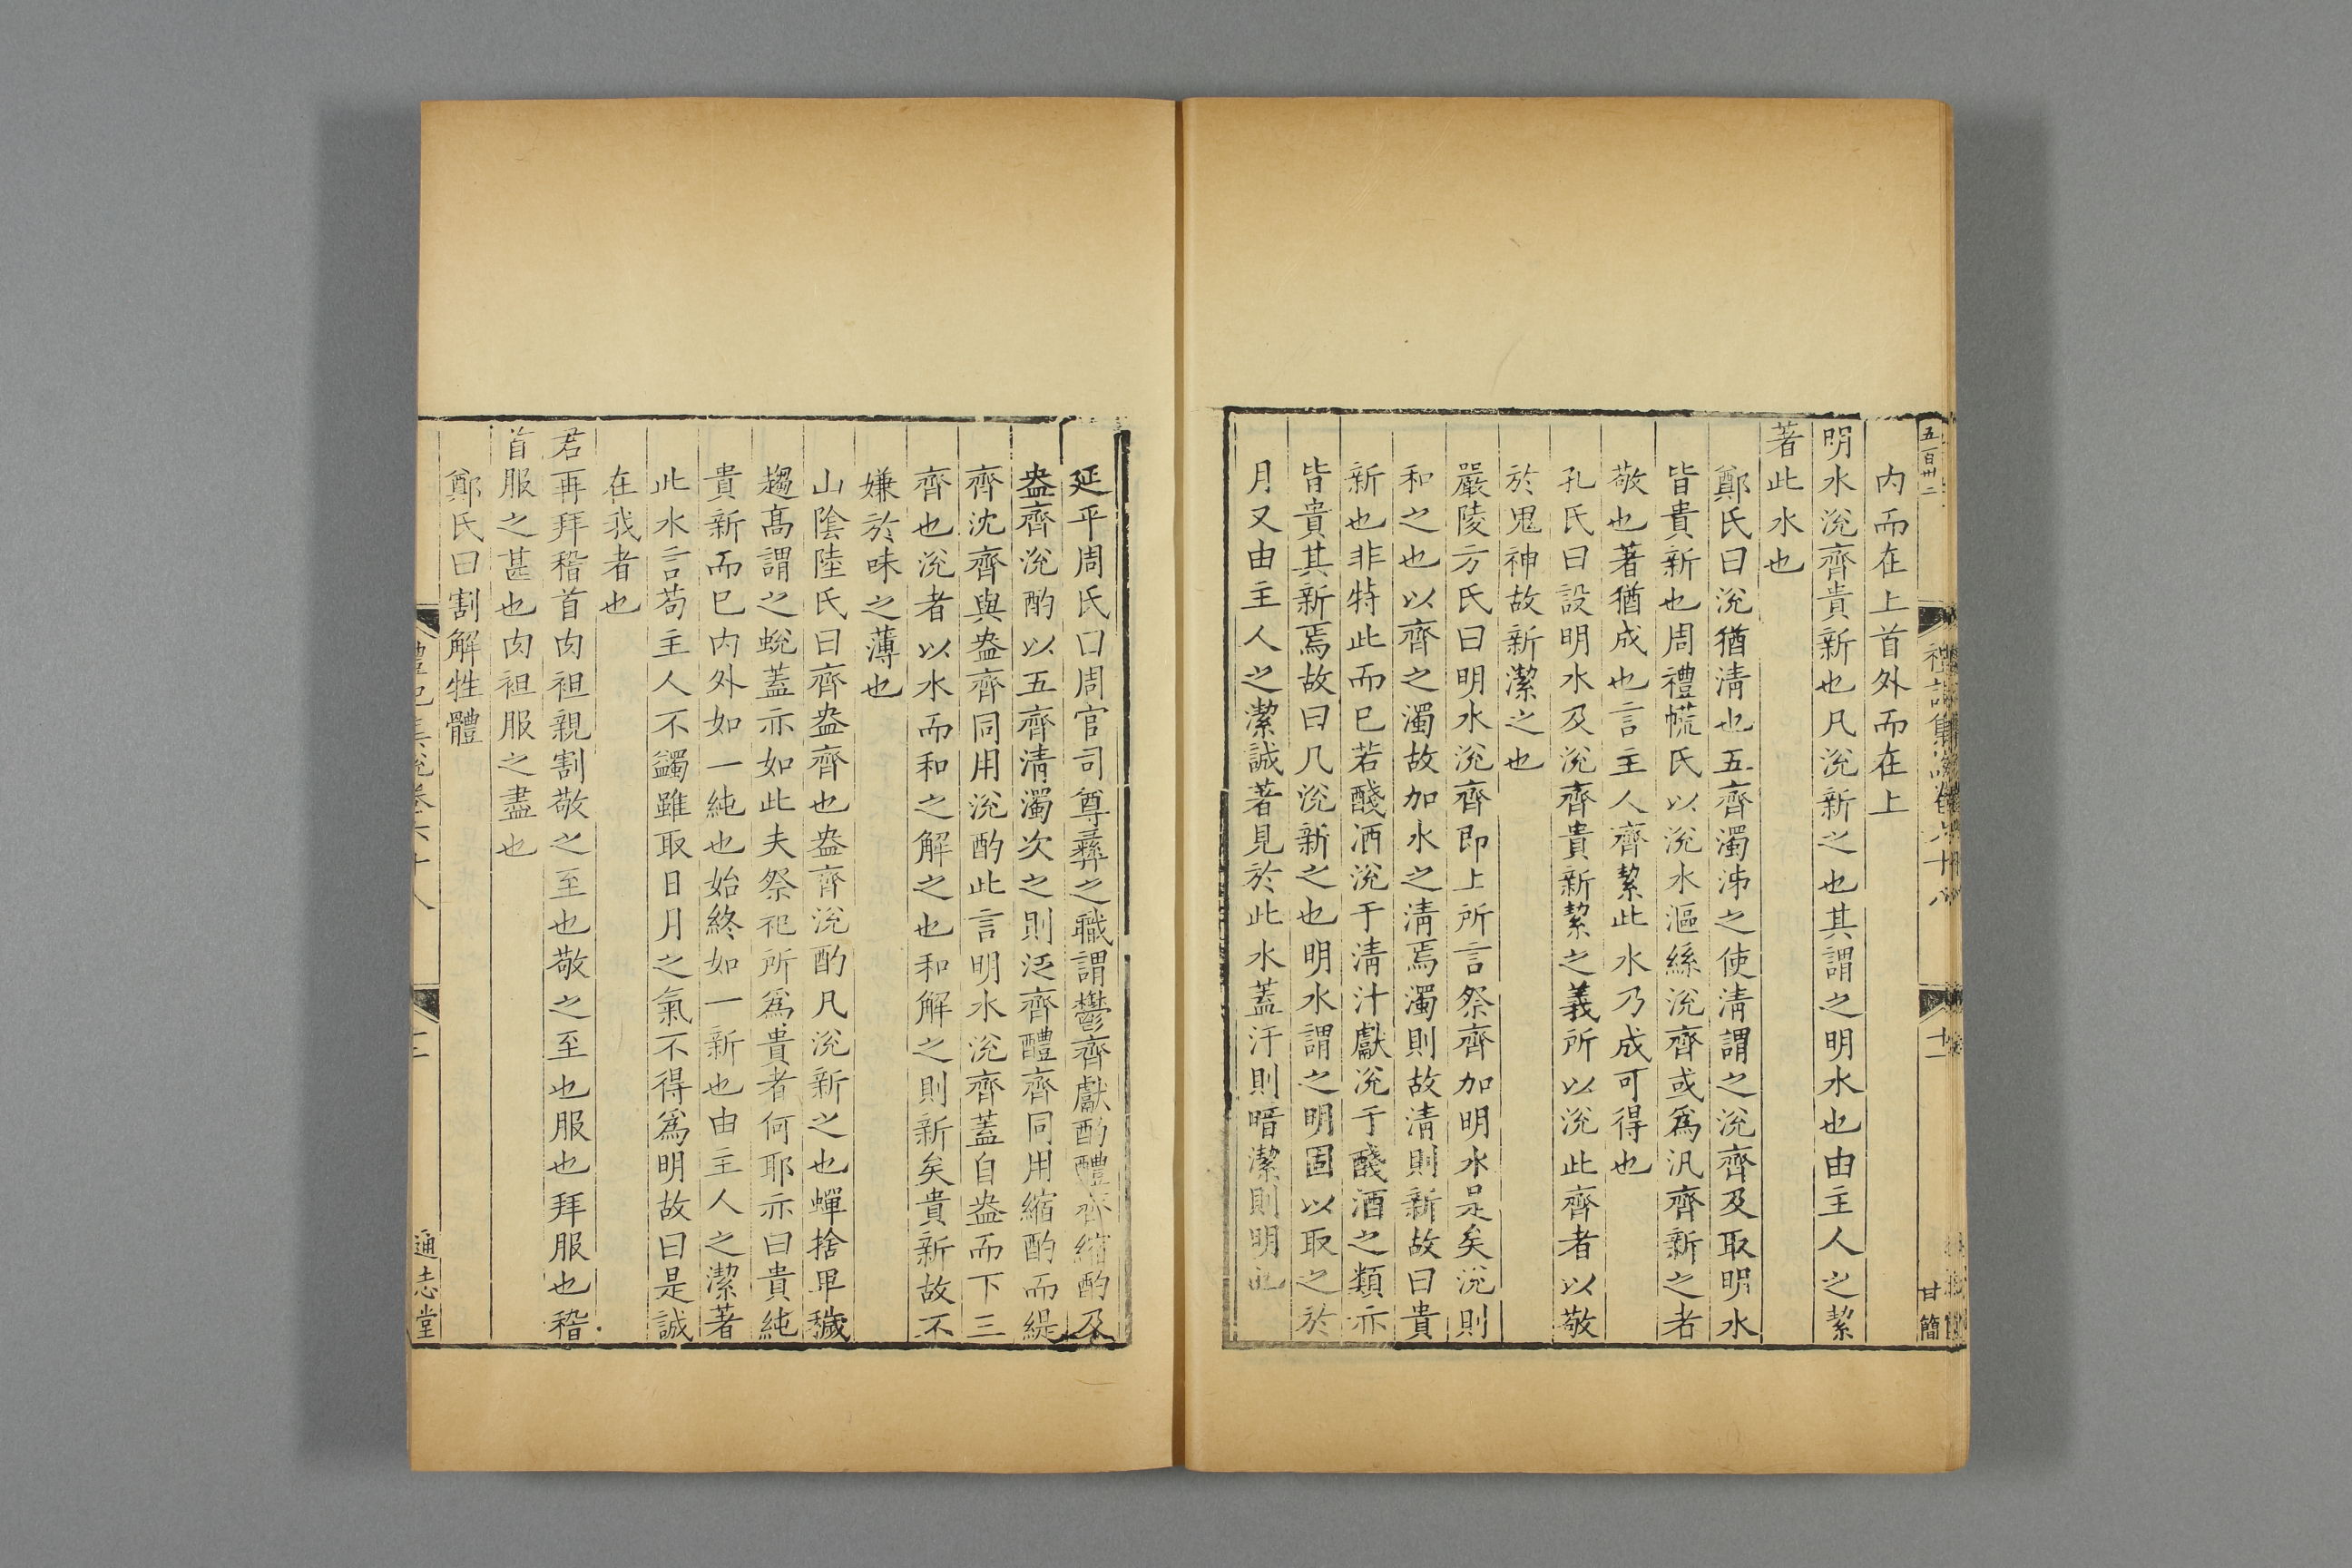 五百卅二
内而在上首外而在上
明水涗齊貴新也凡涗新之也其謂之明水也由主人之絜
著此水也
鄭氏曰涗猶清也五齊濁泲之使清謂之涗齊及取明水
皆貴新也周禮㡆氏以涗水漚絲涗齊或爲汎齊新之者
敬也著猶成也言主人齊絜此水乃成可得也
孔氏曰設明水及涗齊貴新絜之義所以涗此齊者以敬
於鬼神故新潔之也
嚴陵方氏曰明水涗齊即上所言祭齊加明水是矣涗則
和之也以齊之濁故加水之清焉濁則故清則新故曰貴
新也非特此而已若醆酒涗于清汁獻涗于醆酒之類亦
皆貴其新焉故曰凡涗新之也明水謂之明固以取之於
月又由主人之潔誠著見於此水蓋汙則暗潔則明也
禮記集說卷六十八
十一
甘簡
延平周氏曰周官司尊彝之職謂鬱齊獻酌醴齊縮酌及
盎齊涗酌以五齊清濁次之則泛齊醴齊同用縮酌而緹
齊沈齊與盎齊同用涗酌此言明水涗齊蓋自盎而下三
齊也涗者以水而和之解之也和解之則新矣貴新故不
嫌於味之薄也
山陰陸氏曰齊盎齊也盎齊涗酌凡涗新之也蟬捨卑穢
趨髙謂之蛻蓋亦如此夫祭祀所爲貴者何耶亦曰貴純
貴新而已内外如一純也始終如一新也由主人之潔著
此水言苟主人不蠲雖取日月之氣不得爲明故曰是誠
在我者也
君再拜稽首肉袒親割敬之至也敬之至也服也拜服也稽
首服之甚也肉袒服之盡也
鄭氏曰割解牲體
禮記集說卷六十八
通志堂